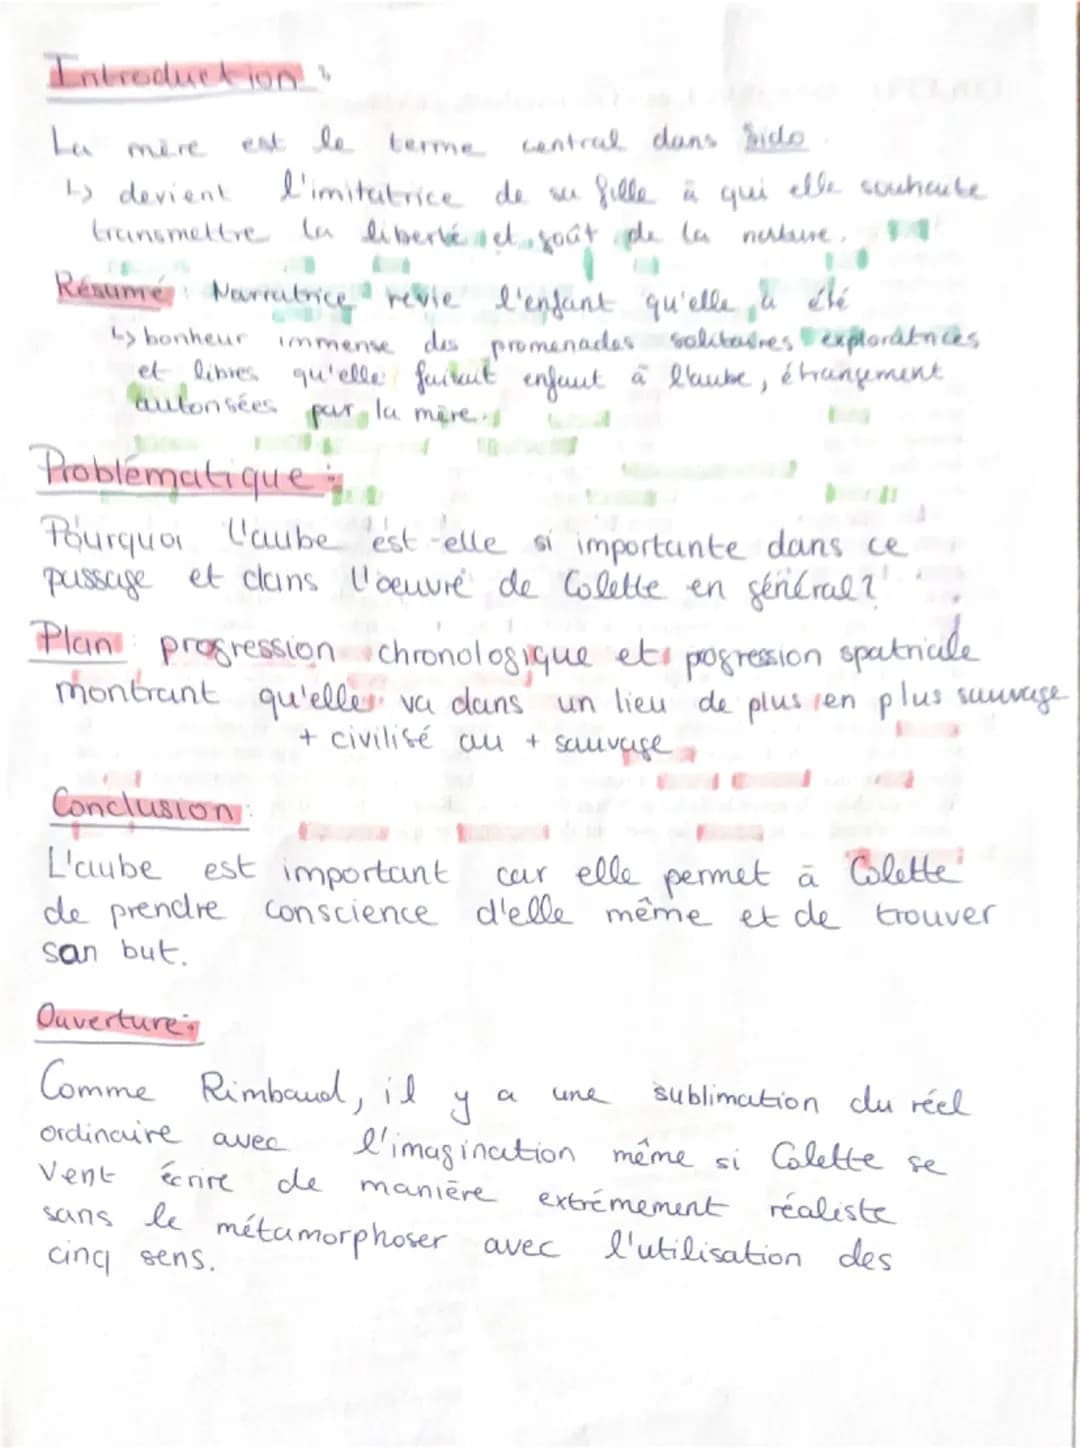 Introduction :
La mère est le terme central dans Sido.
↳ devient l'imitatrice de sa fille à qui elle souhaite
transmettre la liberté et goût de la nature.
Résumé : Narratrice revie l'enfant qu'elle a été
↳ bonheur immense des promenades solitaires exploratrices
et libres qu'elle faisait enfant à l'aube, étrangement
autorisées par la mère.
Problématique :
Pourquoi l'aube est-elle si importante dans ce
passage et dans l'oeuvre de Colette en général?
Plan : progression chronologique et posression spatriale
montrant qu'elle va dans un lieu de plus en plus sauvage
+ civilisé au + sauvage
Conclusion :
L'aube est important car elle permet à Colette
de prendre conscience d'elle même et de trouver
san but.
Ouverture :
Comme Rimbaud, il y a une sublimation du réel
ordinaire avec l'imagination même si Colette se
vent écrire de manière extrémement réaliste
sans le métamorphoser avec l'utilisation des
cinq sens.